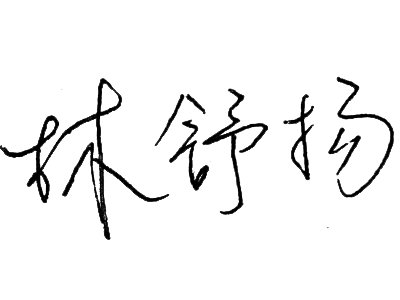 林舒扬